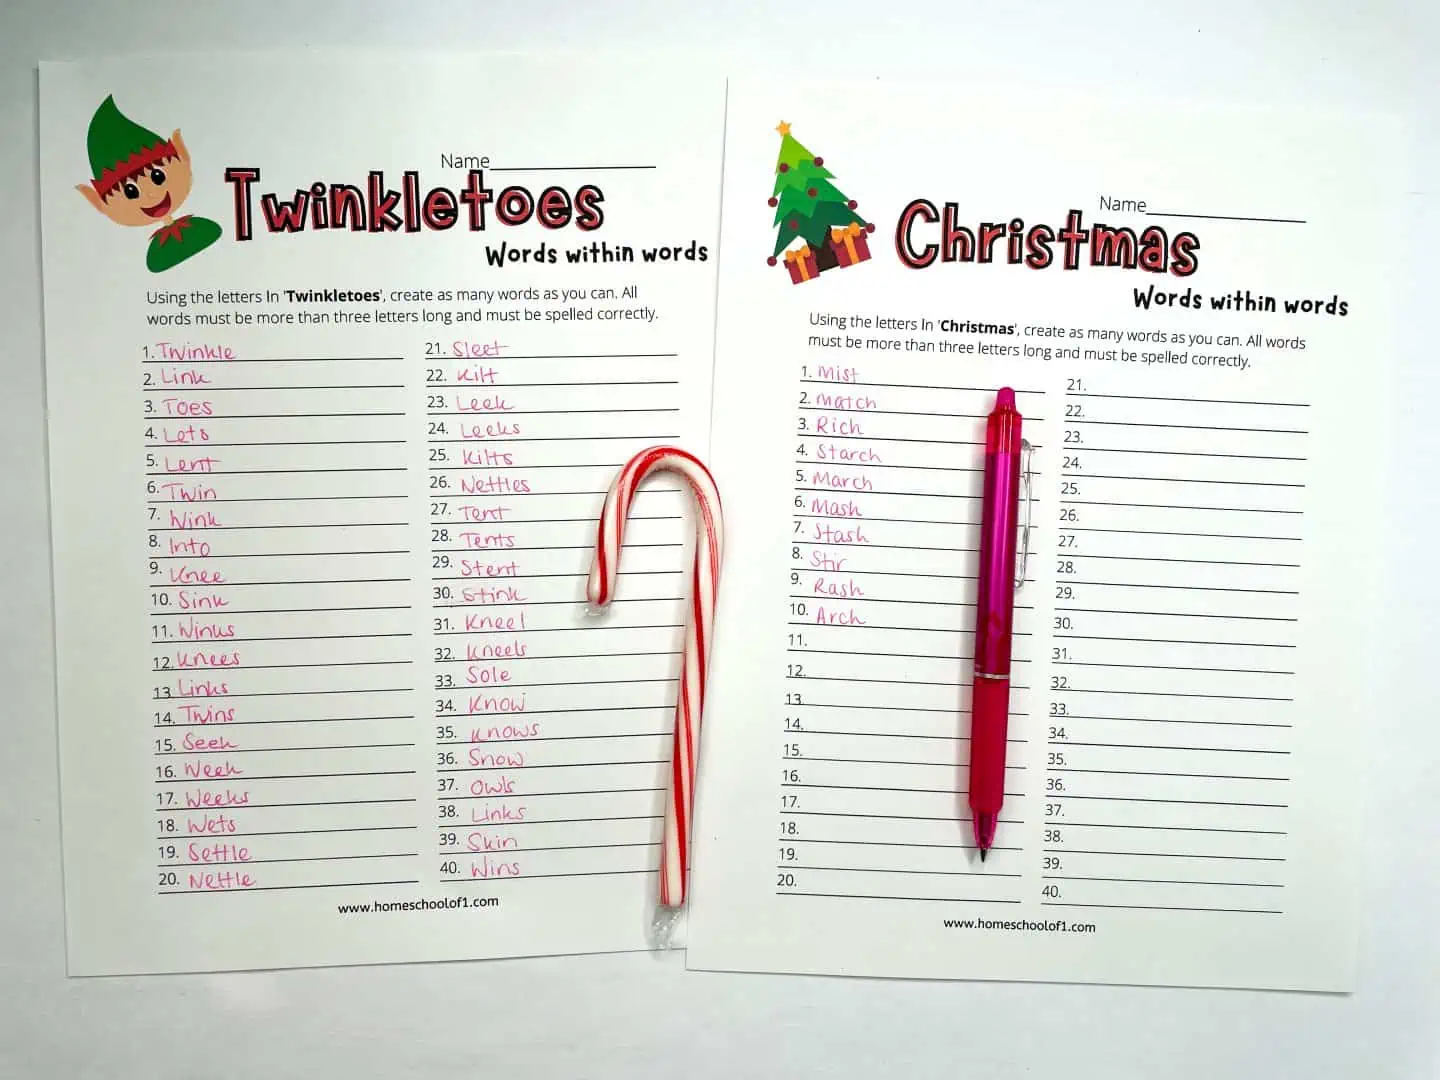 Name
Twinkletoes
Words within words
Using the letters In 'Twinkletoes', create as many words as you can. All
words must be more than three letters long and must be spelled correctly.
1. Twinkle
2. Link
3. Toes
4. Lets
5. Lent
6. Twin
7. Wink
8. Into
9. Knee
10. Sink
11. Winks
12. Knees
13. Links
14. Twins
15. Seek
16. Week
17. Weeks
18. Wets
19. Settle
20. Nettle
21. Sleet
22. Kilt
23. Leek
24. Leeks
25. Kilts
26. Nettles
27. Tent
28. Tents
29. Stent
30. Stink
31. Kneel
32. Kneels
33. Sole
34. Know
35. Knows
36. Snow
37. Owls
38. Links
39. Skin
40. Wins
www.homeschoolof1.com
Name
Christmas
Words within words
Using the letters In 'Christmas', create as many words as you can. All words
must be more than three letters long and must be spelled correctly.
1. Mist
2. Match
3. Rich
4. Starch
5. March
6. Mash
7. Stash
8. Stir
9. Rash
10. Arch
11.
12.
13.
14.
15.
16.
17.
18.
19.
20.
21.
22.
23.
24.
25.
26.
27.
28.
29.
30.
31.
32.
33.
34.
35.
36.
37.
38.
39.
40.
www.homeschoolof1.com